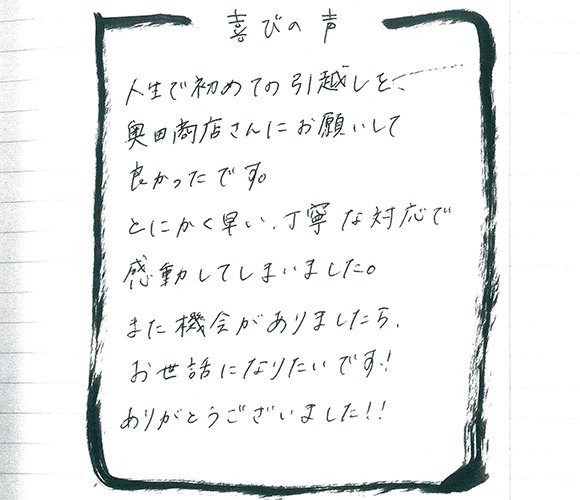 喜びの声
人生で初めての引越しを、
奥田商店さんにお願いして
良かったです。
とにかく早い、丁寧な対応で
感動してしまいました。
また機会がありましたら、
お世話になりたいです!
ありがとうございました!!